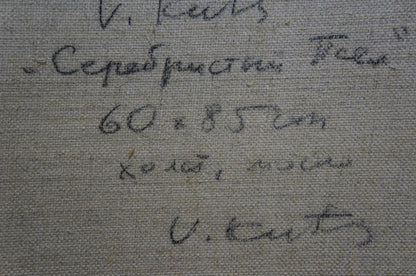 V. Kutz
„Серебристый Псел"
60 x 85 cm
холст, масло
V. Kutz